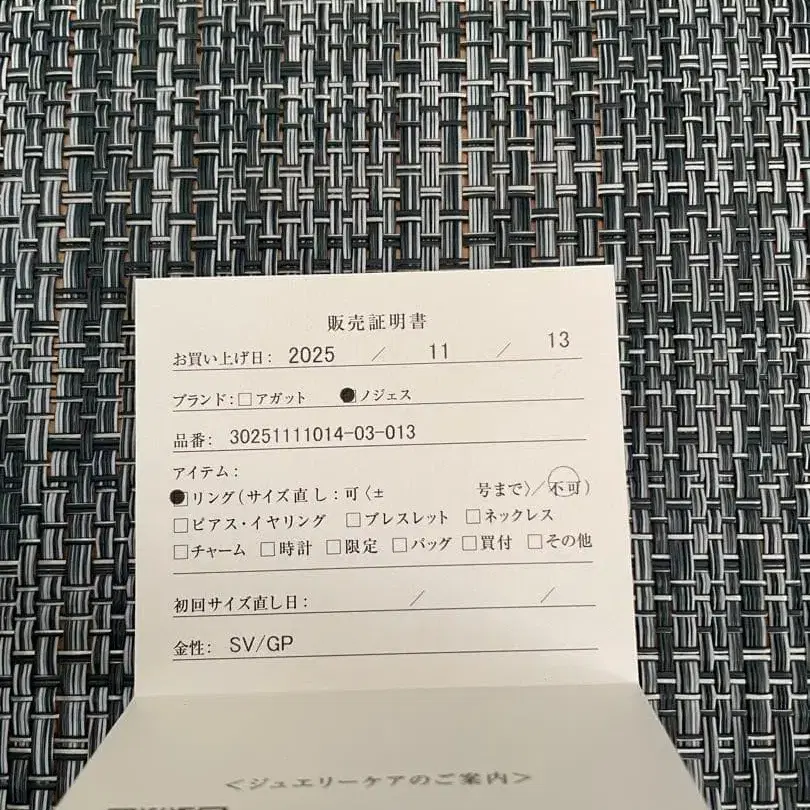 販売証明書
お買い上げ日: 2025 / 11 / 13
ブランド: □アガット ■ノジェス
品番: 30251111014-03-013
アイテム:
■リング(サイズ直し:可〈± 号まで〉/不可)
□ピアス・イヤリング □ブレスレット □ネックレス
□チャーム □時計 □限定 □バッグ □買付 □その他
初回サイズ直し日: / /
金性: SV/GP
<ジュエリーケアのご案内>